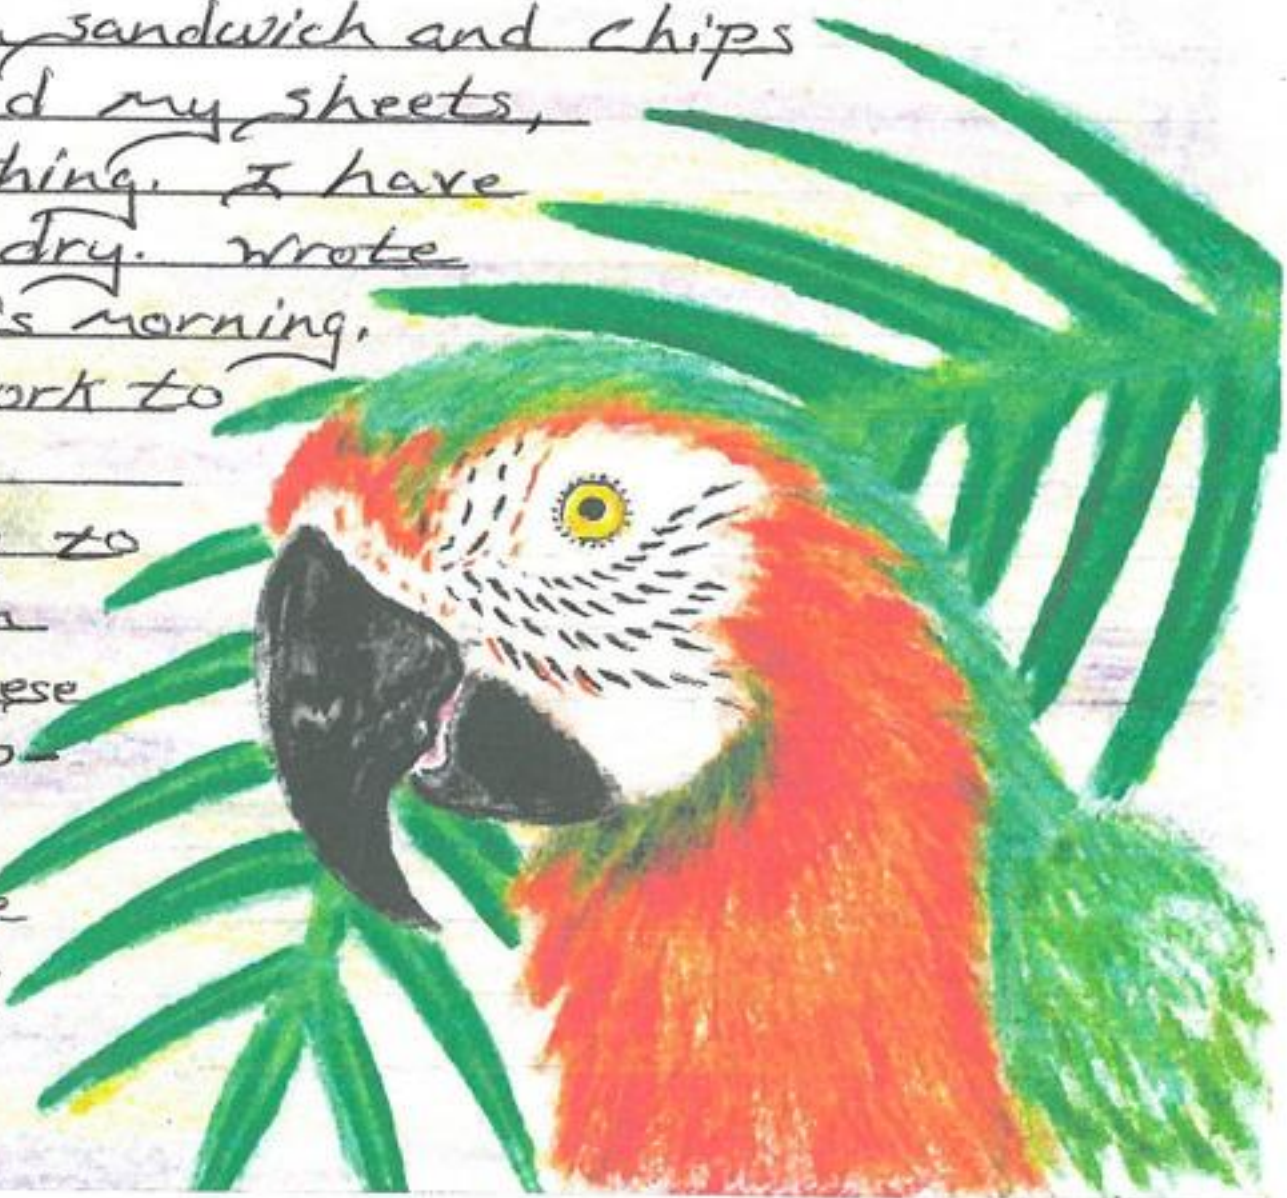 sandwich and chips
d my sheets,
hing. I have
dry. Wrote
's morning.
ork to
to
ese
o-